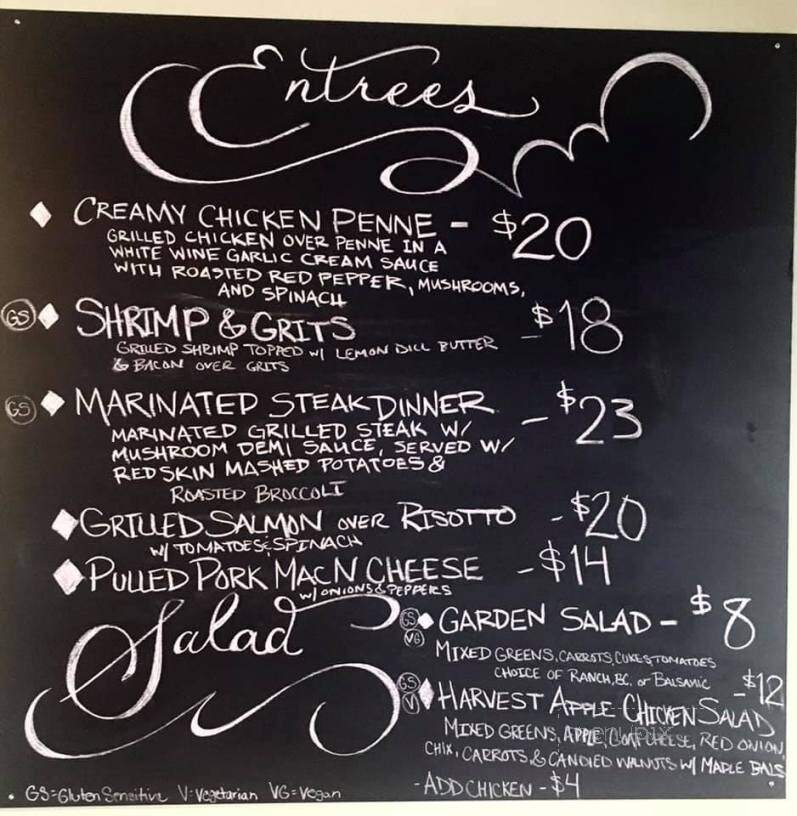 Entrees
CREAMY CHICKEN PENNE - $20
GRILLED CHICKEN OVER PENNE IN A
WHITE WINE GARLIC CREAM SAUCE
WITH ROASTED RED PEPPER, MUSHROOMS,
AND SPINACH
GS SHRIMP & GRITS - $18
GRILLED SHRIMP TOPPED W/ LEMON DILL BUTTER
& BACON OVER GRITS
GS MARINATED STEAK DINNER - $23
MARINATED GRILLED STEAK W/
MUSHROOM DEMI SAUCE, SERVED W/
REDSKIN MASHED POTATOES &
ROASTED BROCCOLI
GRILLED SALMON OVER RISOTTO - $20
W/ TOMATOES & SPINACH
PULLED PORK MAC N CHEESE - $14
W/ ONIONS & PEPPERS
Salad
GS VG GARDEN SALAD - $8
MIXED GREENS, CARROTS, CUKES, TOMATOES
CHOICE OF RANCH, BC. or BALSAMIC
GS V HARVEST APPLE CHICKEN SALAD - $12
MIXED GREENS, APPLE, GOAT CHEESE, RED ONION,
CHIX, CARROTS, & CANDIED WALNUTS W/ MAPLE BALS
- ADD CHICKEN - $4
GS=Gluten Sensitive V=Vegetarian VG=Vegan